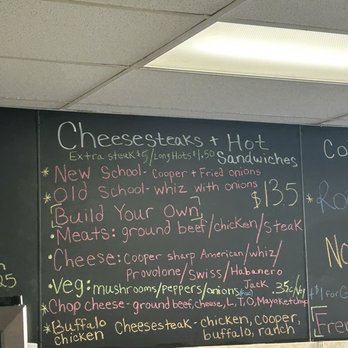 Cheesesteaks + Hot
Extra steak $5/Long Hots $1.50 Sandwiches
*New School - Cooper + Fried onions
*Old School - whiz with onions
$13.5
[Build Your Own]
•Meats: ground beef/chicken/steak
•Cheese: Cooper sharp American/whiz/
Provolone/Swiss/Habanero
Jack
•Veg: mushrooms/peppers/onions
*Chop cheese - ground beef, cheese, L, T, O, Mayo, ketchup
*Buffalo Cheesesteak - chicken, cooper,
chicken buffalo, ranch